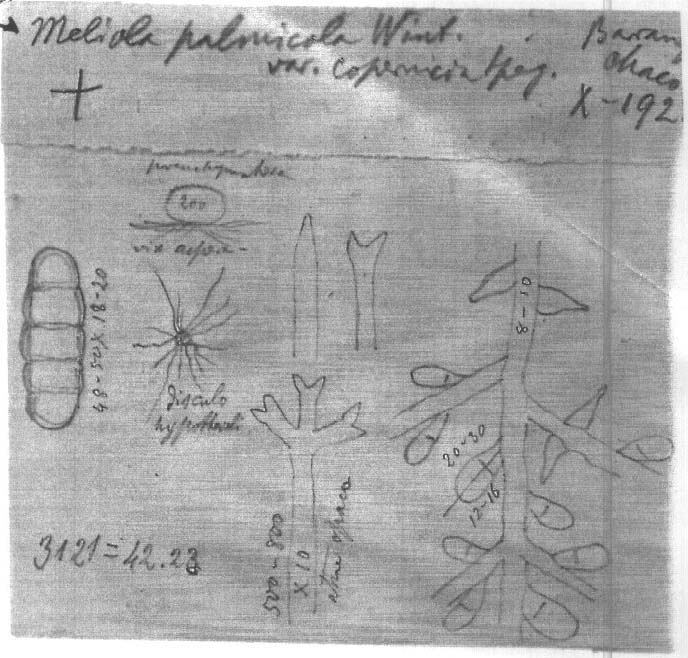 Meliola palmicola Wint.
var. copernicia Speg.
Barran
Chaco
X-192
200
vix aspera -
48-50 x 18-20
disculo
hypostrodi
500-800
x 10
opaca
8-10
20-30
12-16
3121=42.23